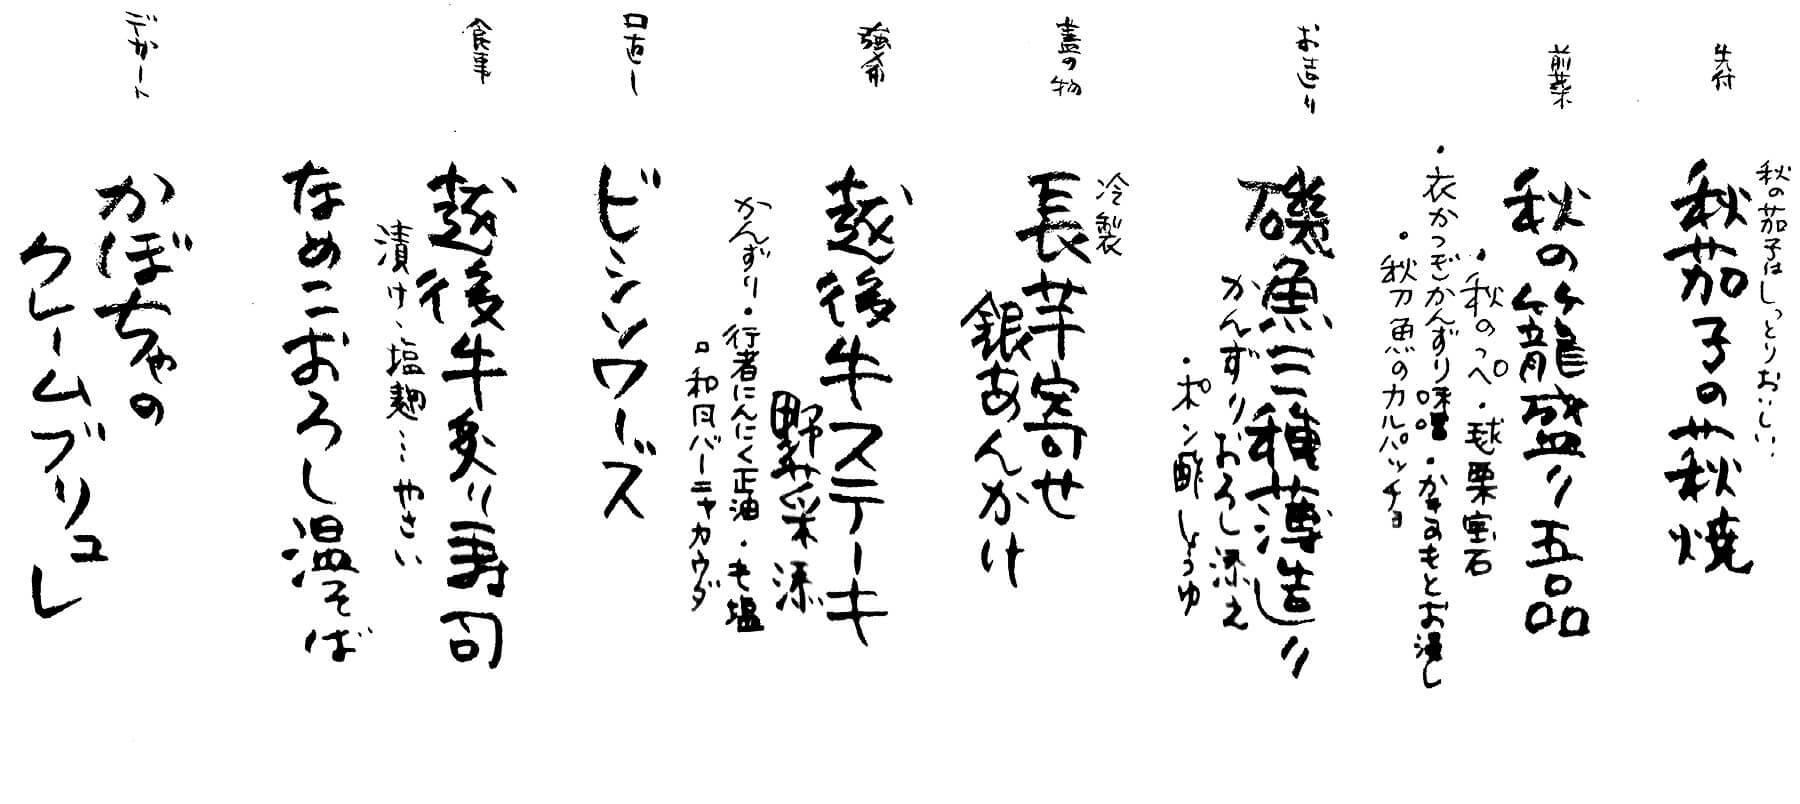 先付
秋の茄子はしっとりおいしい、
秋茄子の萩焼
前菜
秋の籠盛り五品
・秋のっぺ・毬栗宝石
・衣かつぎかんずり味噌・かきのもとお浸し
・秋刀魚のカルパッチョ
お造り
磯魚三種薄造り
かんずりおろし添え
・ポン酢しょうゆ
蓋の物
冷製
長芋寄せ
銀あんかけ
強肴
越後牛ステーキ
野菜添
かんずり・行者にんにく正油・も塩
・和風バーニャカウダ
口直し
ビシソワーズ
食事
越後牛炙り寿司
漬け、塩麹…やさい
なめこおろし温そば
デザート
かぼちゃの
クレームブリュレ